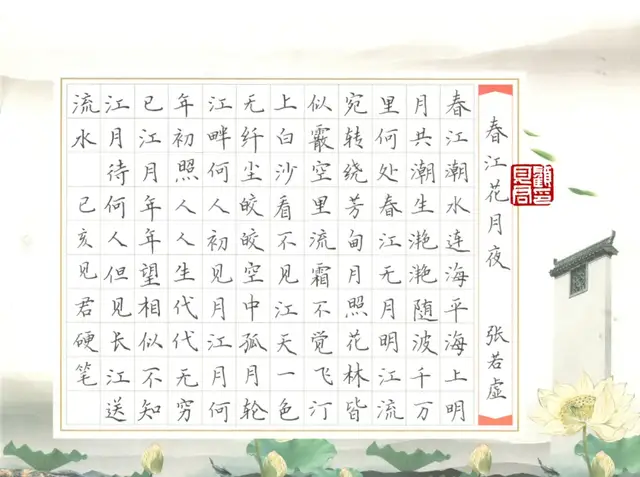 春江花月夜 张若虚
春江潮水连海平海上明
月共潮生滟滟随波千万
里何处春江无月明江流
宛转绕芳甸月照花林皆
似霰空里流霜不觉飞汀
上白沙看不见江天一色
无纤尘皎皎空中孤月轮
江畔何人初见月江月何
年初照人人生代代无穷
已江月年年望相似不知
江月待何人但见长江送
流水 己亥见君硬笔